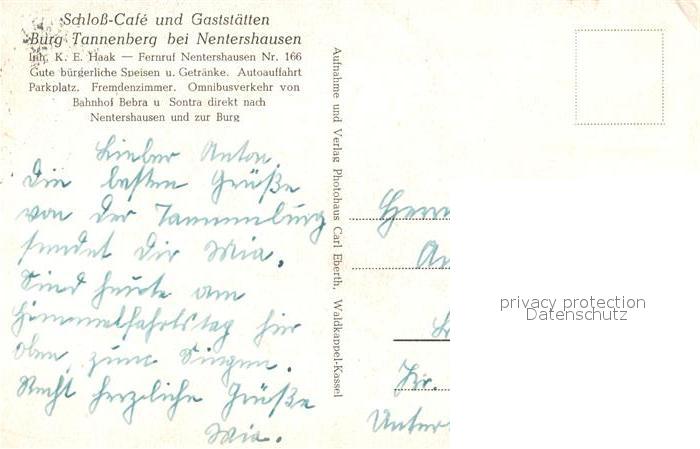 Schloß-Café und Gaststätten
Burg Tannenberg bei Nentershausen
Inh. K. E. Haak — Fernruf Nentershausen Nr. 166
Gute bürgerliche Speisen u. Getränke. Autoauffahrt
Parkplatz. Fremdenzimmer. Omnibusverkehr von
Bahnhof Bebra u Sontra direkt nach
Nentershausen und zur Burg
Lieber Anton,
Die besten Grüße
von der Tannenburg
sendet dir Mia.
Sind heute am
Himmelfahrtstag hier
oben, zum Singen.
Recht herzliche Grüße
Mia.
Aufnahme und Verlag Photohaus Carl Eberth, Waldkappel-Kassel
Herrn
An
Kr.
Unter
privacy protection
Datenschutz